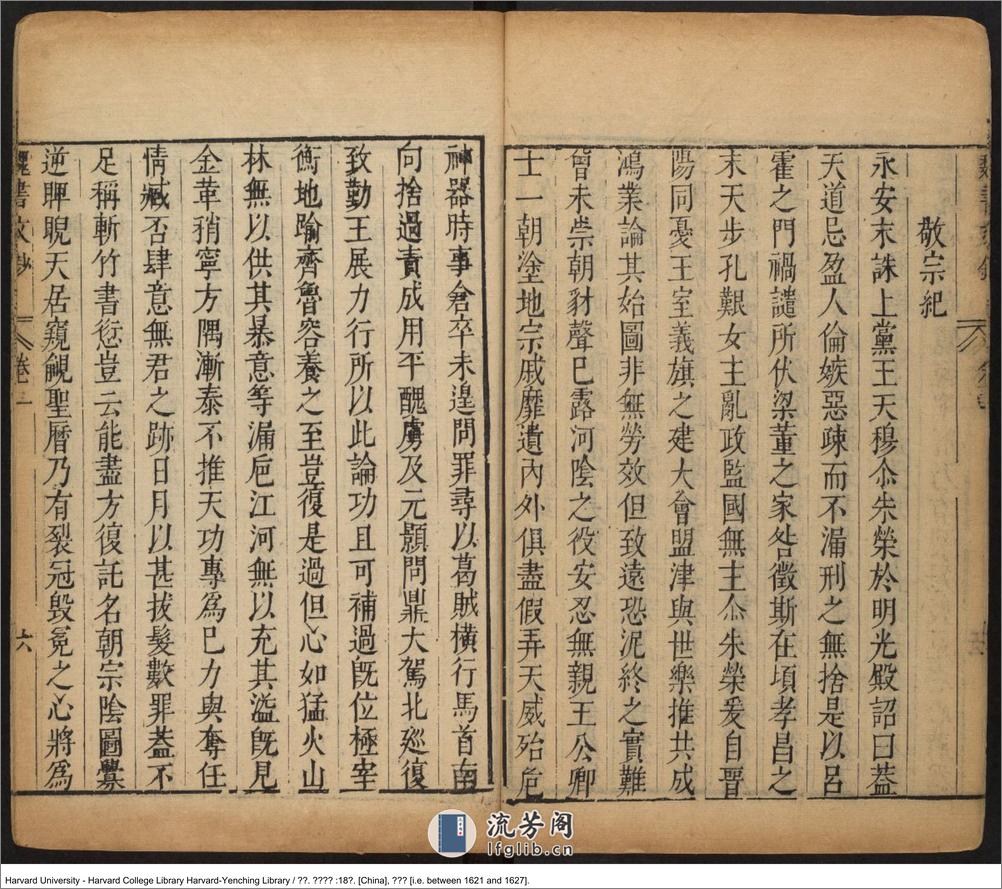 敬宗紀
永安末誅上黨王天穆尒朱榮於明光殿詔曰葢
天道忌盈人倫嫉惡疎而不漏刑之無捨是以呂
霍之門禍譴所伏梁董之家咎徵斯在頃孝昌之
末天步孔艱女主亂政監國無主尒朱榮爰自晉
陽同憂王室義旗之建大會盟津與世樂推共成
鴻業論其始圖非無勞效但致遠恐泥終之實難
曾未崇朝豺聲已露河陰之役安忍無親王公卿
士一朝塗地宗戚靡遺內外俱盡假弄天威殆危
神器時事倉卒未遑問罪尋以葛賊橫行馬首南
向捨過責成用平醜虜及元顥問鼎大駕北廵復
致勤王展力行所以此論功且可補過旣位極宰
衡地踰齊魯容養之至豈復是過但心如猛火山
林無以供其暴意等漏巵江河無以充其溢旣見
金革稍寧方隅漸泰不推天功專爲已力與奪任
情臧否肆意無君之跡日月以甚拔髮數罪葢不
足稱斬竹書愆豈云能盡方復託名朝宗陰圖釁
逆睥睨天居窺覦聖曆乃有裂冠毁冕之心將爲
魏書文鈔
卷二
六
流芳阁
lfglib.cn
Harvard University - Harvard College Library Harvard-Yenching Library / ??. ???? :18?. [China], ??? [i.e. between 1621 and 1627].